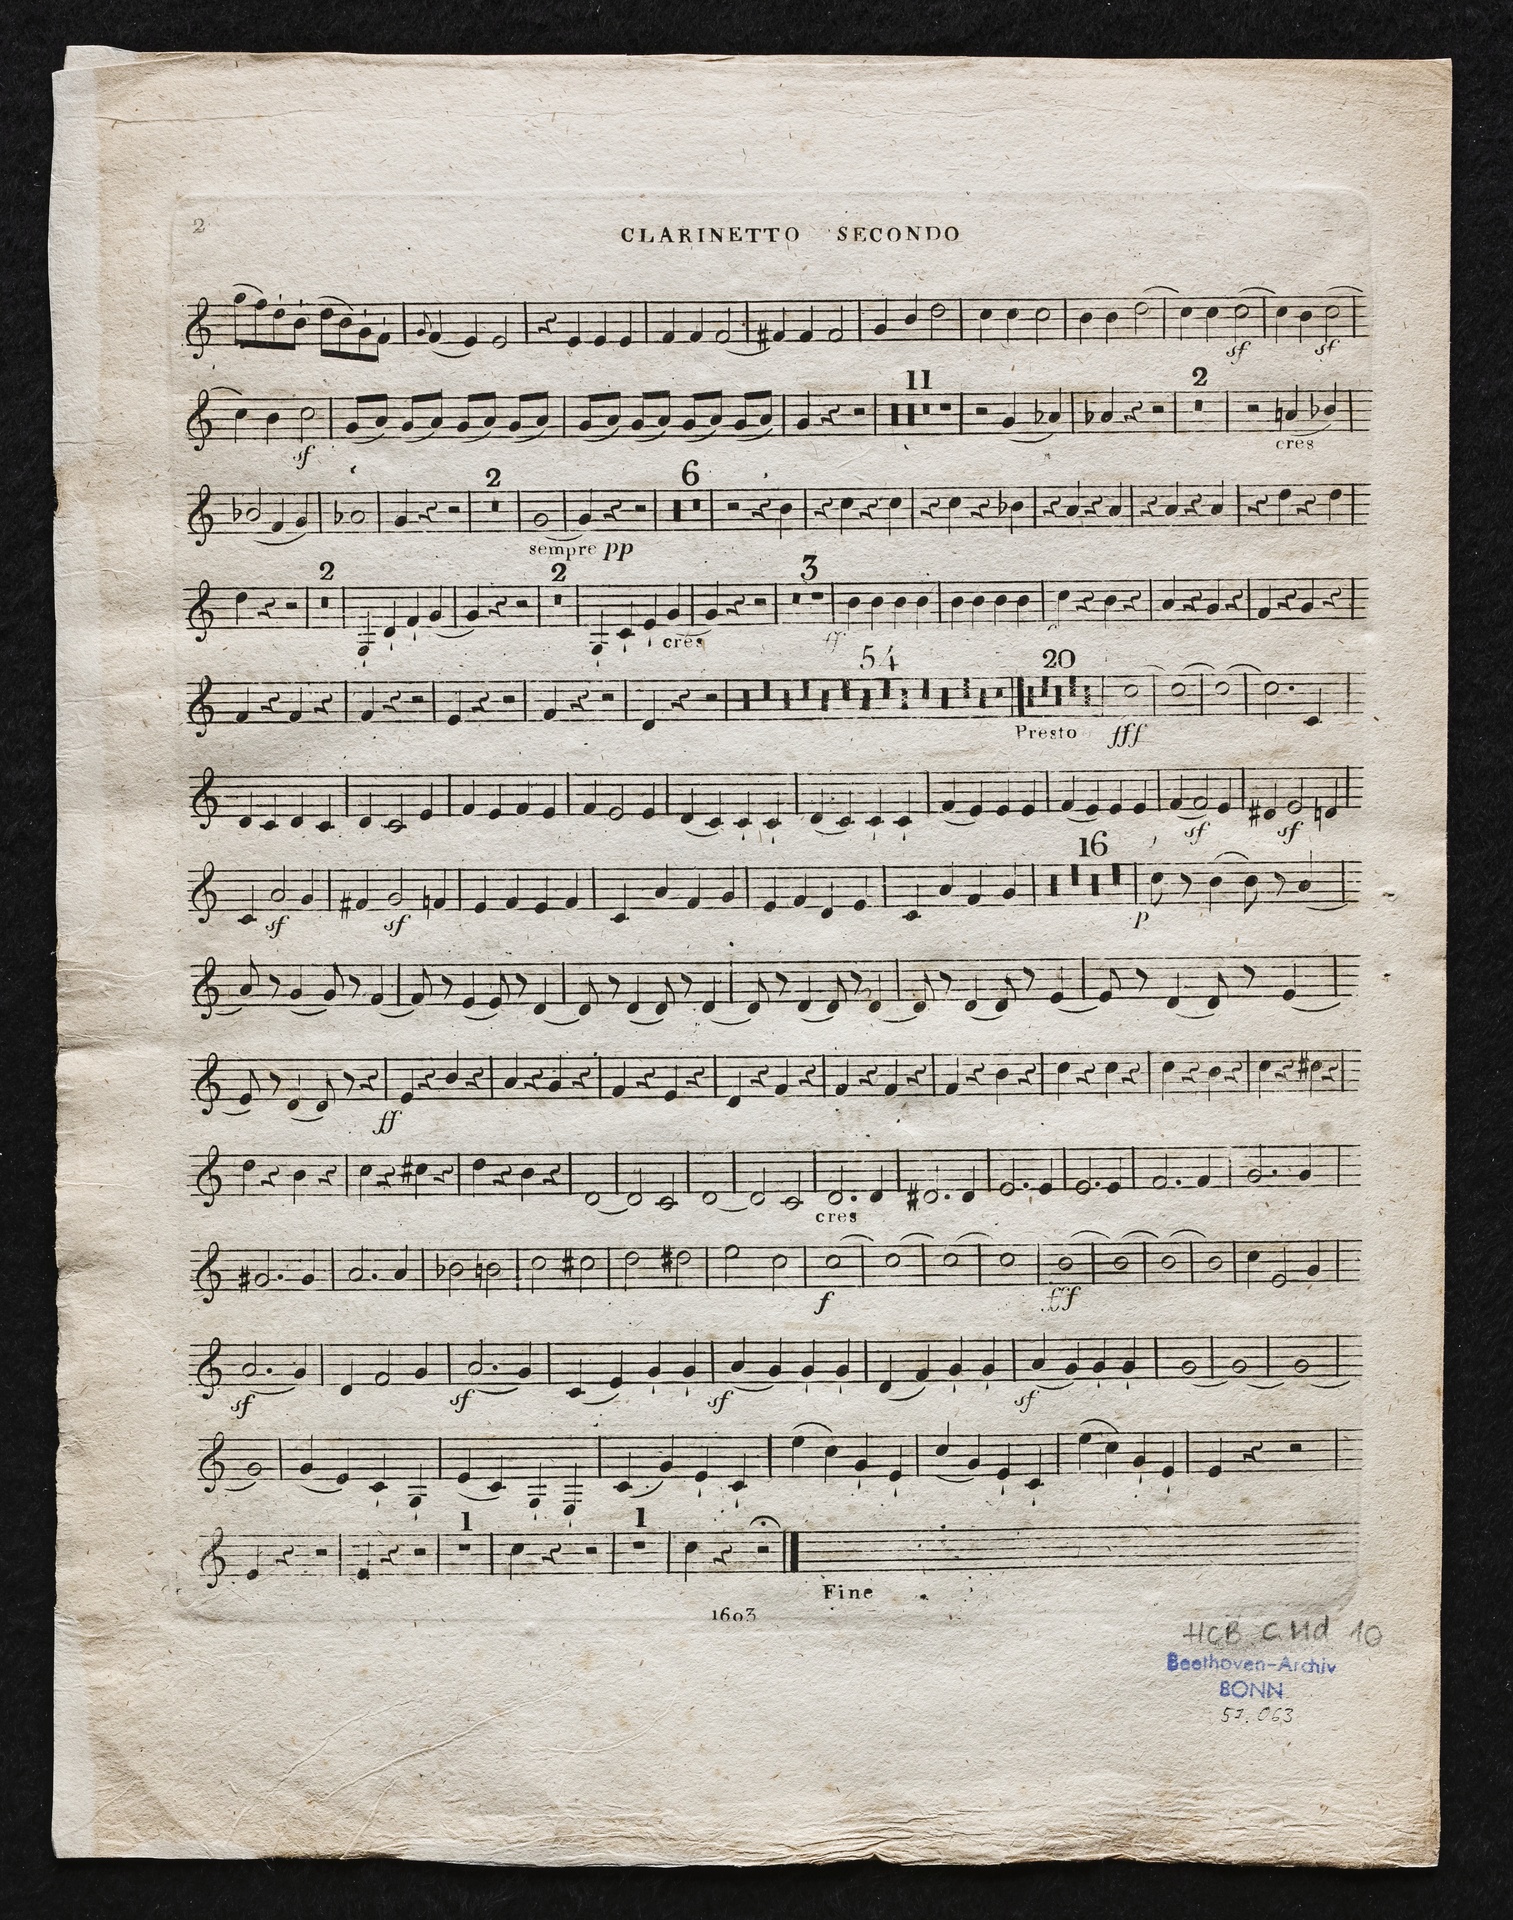 2
CLARINETTO SECONDO
sf sf
11 2
sf cres
2 6
sempre pp
2 2 3
cres ff
54 20
Presto fff
sf sf
16
sf sf p
ff
cres
f fff
sf sf sf sf
1 1
Fine
1603
HCB C Md 10
Beethoven-Archiv
BONN
57.063